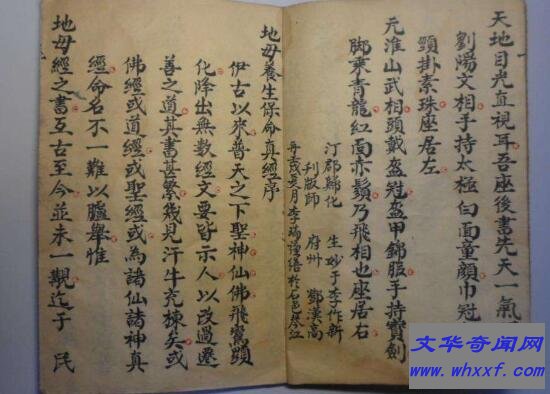 天地目光直視耳吾座後書先天一氣
劉陽文相手持太極白面童顏巾冠
頸掛素珠座居左
元淮山武相頭戴盔冠盔甲錦服手持寶劍
腳乘青龍紅面赤鬚乃飛相也座居右
汀郡歸化 生妙于李作新
刊版師 府州 鄧漢高
月李瑞謹繕於
地母養生保命真經序
伊古以來普天之下聖神仙佛飛鸞顯
化降出無數經文要皆示人以改過遷
善之道其書甚繁幾見汗牛充棟矣或
佛經或道經或聖經或為諸仙諸神真
經命名不一難以臚舉惟
地母經之書亙古至今並未一覩迄于 民
文华奇闻网
www.whxxf.com